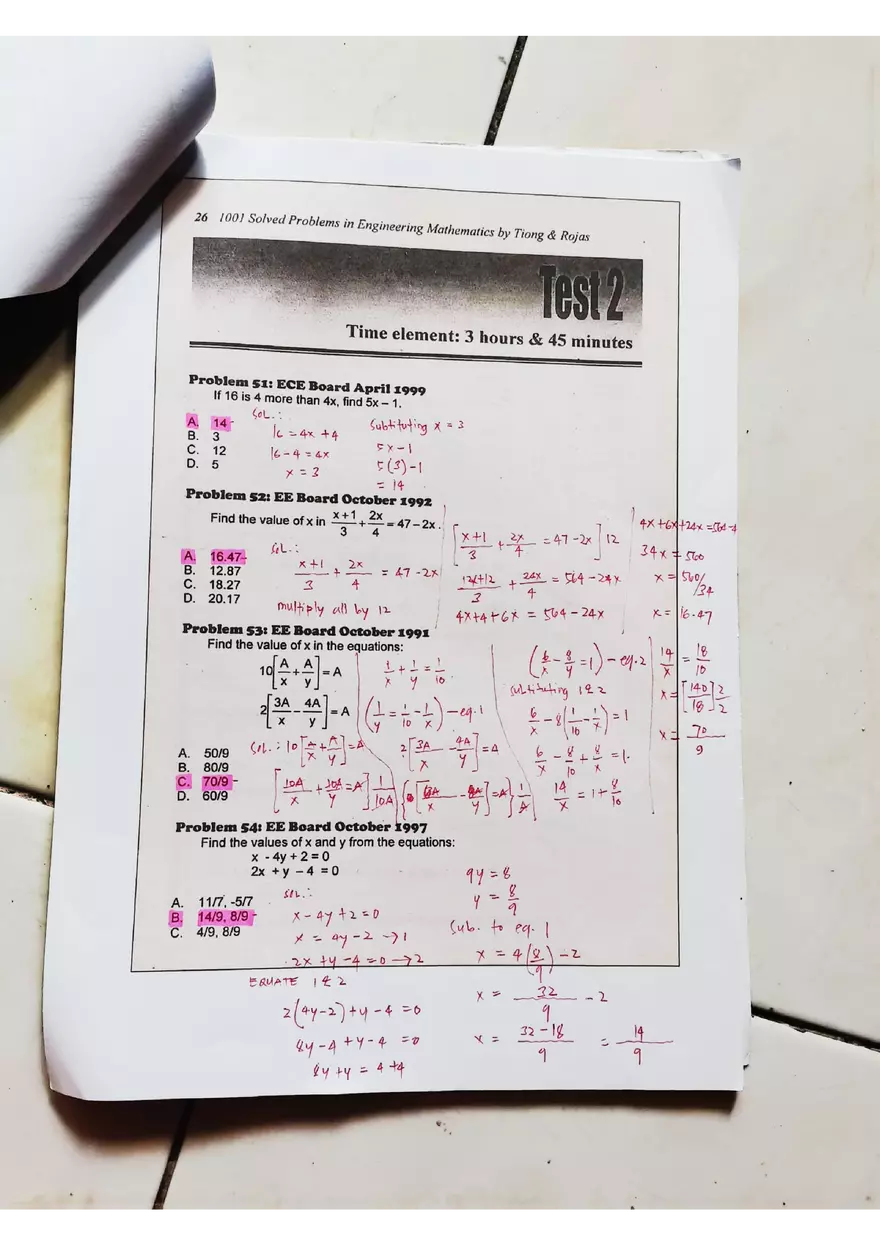 26 1001 Solved Problems in Engineering Mathematics by Tiong & Rojas
Test 2
Time element: 3 hours & 45 minutes
Problem 51: ECE Board April 1999
If 16 is 4 more than 4x, find 5x – 1.
A. 14
B. 3
C. 12
D. 5
SOL.:
16 = 4x + 4
16 - 4 = 4x
x = 3
Subtituting x = 3
5x - 1
5(3) - 1
= 14
Problem 52: EE Board October 1992
Find the value of x in (x+1)/3 + 2x/4 = 47 – 2x.
A. 16.47
B. 12.87
C. 18.27
D. 20.17
Sol.:
(x+1)/3 + 2x/4 = 47 - 2x
multiply all by 12
[(x+1)/3 + 2x/4 = 47 - 2x] 12
(12x+12)/3 + 24x/4 = 564 - 24x
4x + 4 + 6x = 564 - 24x
4x + 6x + 24x = 564 - 4
34x = 560
x = 560/34
x = 16.47
Problem 53: EE Board October 1991
Find the value of x in the equations:
10[A/x + A/y] = A
2[3A/x - 4A/y] = A
A. 50/9
B. 80/9
C. 70/9
D. 60/9
Sol.: 10[A/x + A/y] = A
[10A/x + 10A/y = A] 1/10A
1/x + 1/y = 1/10
(1/y = 1/10 - 1/x) - eq.1
2[3A/x - 4A/y] = A
{[6A/x - 8A/y] = A} 1/A
(6/x - 8/y = 1) - eq.2
subtituting 1 & 2
6/x - 8(1/10 - 1/x) = 1
6/x - 8/10 + 8/x = 1
14/x = 1 + 8/10
14/x = 18/10
x = [140/18] 2/2
x = 70/9
Problem 54: EE Board October 1997
Find the values of x and y from the equations:
x - 4y + 2 = 0
2x + y – 4 = 0
A. 11/7, -5/7
B. 14/9, 8/9
C. 4/9, 8/9
SOL.:
x - 4y + 2 = 0
x = 4y - 2 → 1
2x + y - 4 = 0 → 2
EQUATE 1 & 2
2(4y-2) + y - 4 = 0
8y - 4 + y - 4 = 0
8y + y = 4 + 4
9y = 8
y = 8/9
Sub. to eq. 1
x = 4(8/9) - 2
x = 32/9 - 2
x = (32 - 18)/9 = 14/9